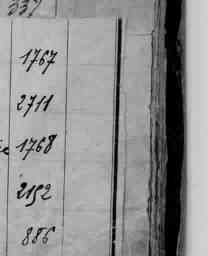 337
1767
2711
1768
2152
886